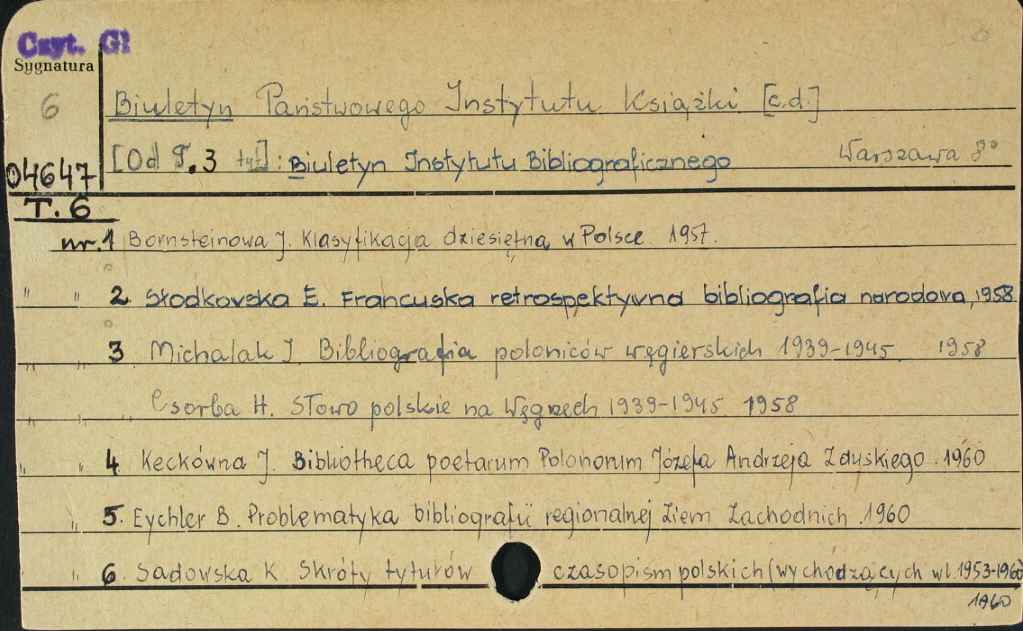 Czyt. Gł
Sygnatura
6
Biuletyn Państwowego Instytutu Książki [c.d.]
04647
[Od T.3 tyt]: Biuletyn Instytutu Bibliograficznego Warszawa 8°
T. 6
nr. 1 Bornsteinowa J. Klasyfikacja dziesiętna w Polsce 1957.
" " 2 Słodkowska E. Francuska retrospektywna bibliografia narodowa, 1958
" " 3 Michalak J. Bibliografia poloniców węgierskich 1939-1945. 1958
" " " Csorba H. Słowo polskie na Węgrzech 1939-1945 1958
" " 4 Keckówna J. Bibliotheca poetarum Polonorum Józefa Andrzeja Załuskiego. 1960
" 5. Eychler B. Problematyka bibliografii regionalnej Ziem Zachodnich. 1960
" 6. Sadowska K Skróty tytułów czasopism polskich (wychodzących w l. 1953-1960
1960